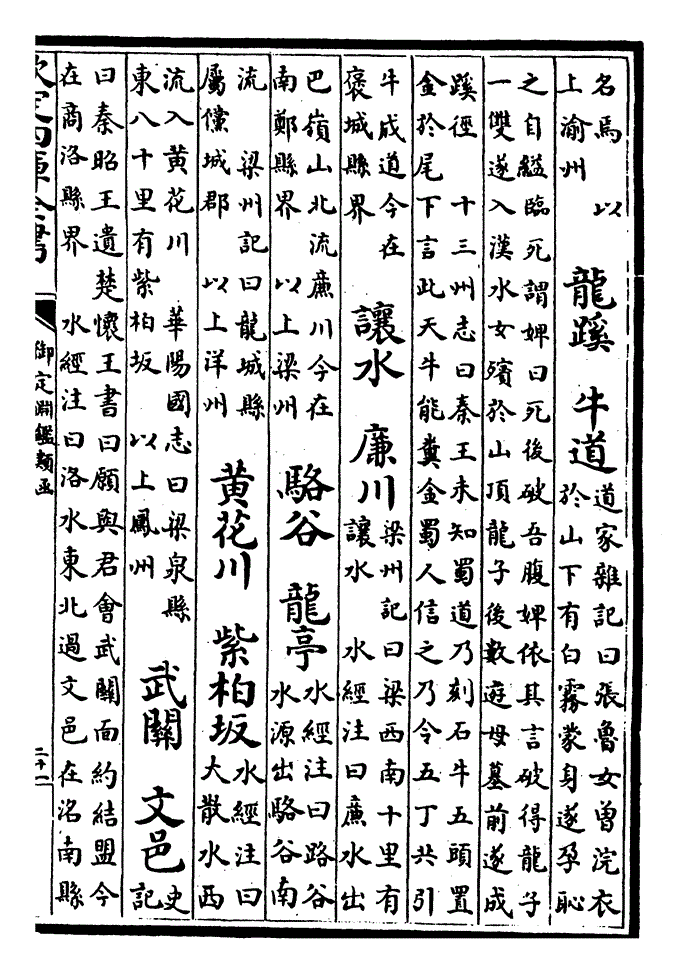 名焉 以
上渝州
龍蹊 牛道
道家雜記曰張魯女曾浣衣
於山下有白霧蒙身遂孕恥
之自縊臨死謂婢曰死後破吾腹婢依其言破得龍子
一雙遂入漢水女殯於山頂龍子後數遊母墓前遂成
蹊徑 十三州志曰秦王未知蜀道乃刻石牛五頭置
金於尾下言此天牛能糞金蜀人信之乃令五丁共引
牛成道今在
褒城縣界
讓水 廉川
梁州記曰梁西南十里有
讓水 水經注曰廉水出
巴嶺山北流廉川今在
南鄭縣界 以上梁州
駱谷 龍亭
水經注曰路谷
水源出駱谷南
流 梁州記曰龍城縣
屬儻城郡 以上洋州
黃花川 紫柏坂
水經注曰
大散水西
流入黃花川 華陽國志曰梁泉縣
東八十里有紫柏坂 以上鳳州
武關 文邑
史
記
曰秦昭王遺楚懷王書曰願與君會武關面約結盟今
在商洛縣界 水經注曰洛水東北過文邑在洺南縣
欽定四庫全書
御定淵鑑類函